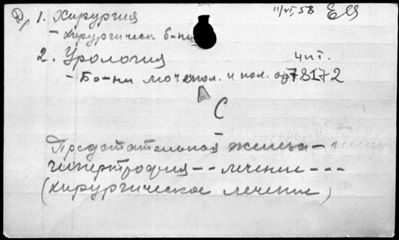 1. Хирургия 11/VI 58
- Хирургическ. б-ни
2. Урология чит.
- Бо-ни мочепол. и пол. 78172
С
Предстательная железа -
гипертрофия - - лечение - - -
(хирургическое лечение)